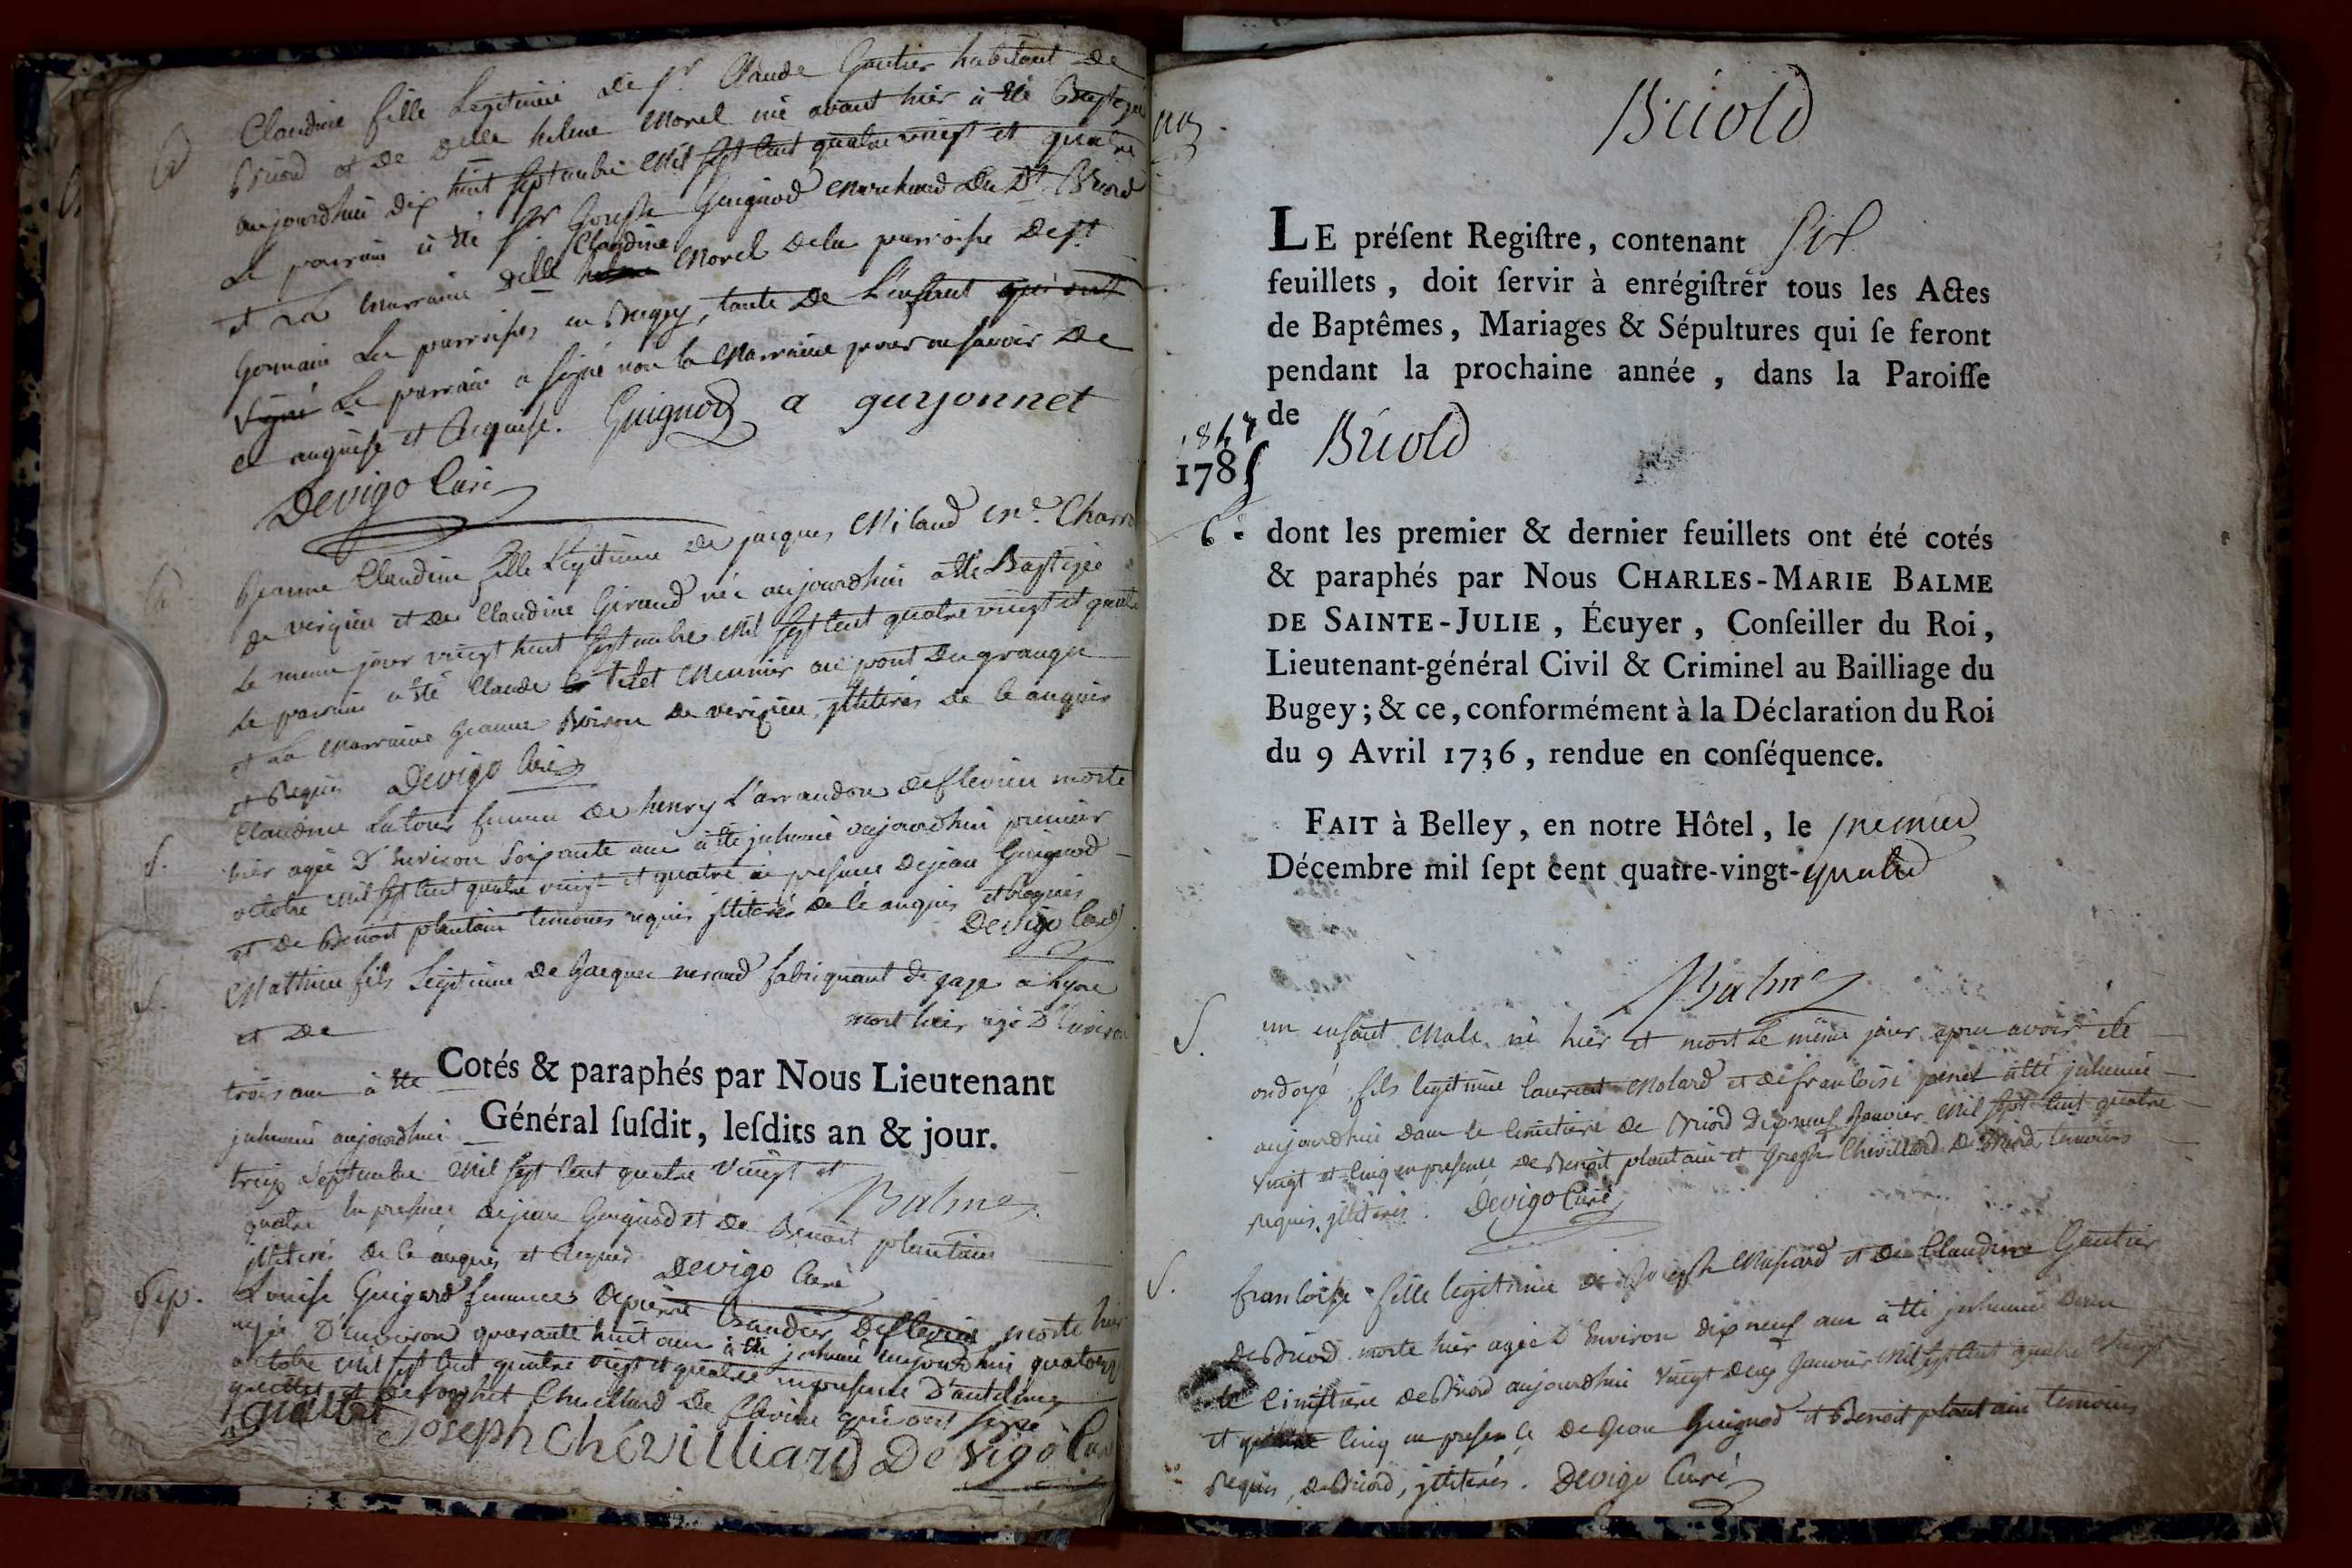 Claudine fille Legitime de sr. Claude Gautier habitant de
Briord et de delle helene Morel née avant hier à été Baptizée
aujourdhui dix huit septembre mil sept cent quatre vingt et quatre
Le parrain à été sr Joseph Guignod marchand du dt. Briord
et La marraine delle Claudine Morel dela parroisse de st.
Germain Les parroisses en Bugey, tante de L'enfant qui ont
signé Le parrain a signé non la Marraine pour ne savoir de
ce enquise et Requise. Guignod a guyonnet
Devigo Curé
Jeanne Claudine fille Legitime de jacques Milaud
de verizieu et de Claudine Giraud née aujourdhui a été Baptizée
Le meme jour vingt huit septembre mil sept cent quatre vingt et quatre
Le parrain a été Claude Tilet Meunier au pont du grangé
et La Marraine Jeanne Boison de verizieu, illiterés de ce enquis
et Requis Devigo Curé
S. Claudine Latour femme de henry L'arrandon de flevieu morte
hier agée D'Environ soixante ans à été inhumée aujourdhui premier
octobre mil sept cent quatre vingt et quatre en presence de jean Guignod
et de Benoit plantain temoins requis illiterés de ce enquis et Requis
Devigo Curé
S. Mathieu fils Legitime de Jacques neraud fabriquant de gaze a Lyon
et de mort hier agé D'Environ
trois ans à été Cotés & paraphés par Nous Lieutenant
inhumé aujourdhui Général ſuſdit, leſdits an & jour.
treize Septembre mil sept cent quatre vingt et
Balme
quatre En presence de jean Guignod et de Benoit plantain
illiterés de ce enquis et Requis Devigo Curé
Sep. Louise Guigard femme de pierre de flevieu morte hier
agée D'Environ quarante huit ans à été inhumée aujourdhui quatorze
octobre mil sept cent quatre vingt et quatre en presence D'antelme
guillet et de Joseph Chevillard de flevieu qui ont signé
guillet Joseph Chevilliard Devigo Curé
Briold
LE préſent Regiſtre, contenant six
feuillets, doit ſervir à enrégiſtrer tous les Actes
de Baptêmes, Mariages & Sépultures qui ſe feront
pendant la prochaine année, dans la Paroiſſe
de Briold
1785
6e
dont les premier & dernier feuillets ont été cotés
& paraphés par Nous CHARLES-MARIE BALME
DE SAINTE-JULIE, Écuyer, Conſeiller du Roi,
Lieutenant-général Civil & Criminel au Bailliage du
Bugey; & ce, conformément à la Déclaration du Roi
du 9 Avril 1736, rendue en conſéquence.
FAIT à Belley, en notre Hôtel, le premier
Décembre mil ſept cent quatre-vingt-quatre
Balme
S. un enfant Male né hier et mort Le même jour apres avoir été
ondoyé, fils legitime laurent Molard et de francoise penet à été inhumé
aujourdhui dans le Cimetiere de Briord dix neuf Janvier mil sept cent quatre
vingt et cinq en presence de Benoit plantain et Joseph Chevillard de Briord temoins
requis, illiterés. Devigo Curé
S. francoise fille legitime de Joseph Musard et de Claudine Gautier
de Briord morte hier agée D'Environ dix neuf ans à été inhumée dans
le Cimetiere de Briord aujourdhui vingt deux Janvier mil sept cent quatre vingt
et cinq en presence de Jean Guignod et Benoit plantain temoins
Requis, de Briord, illiterés. Devigo Curé